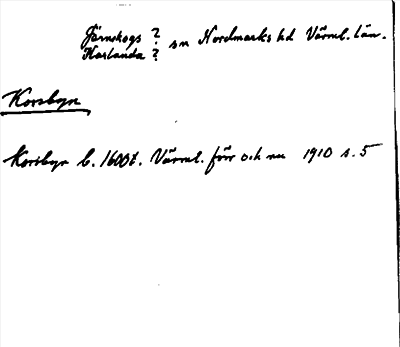 Järnskogs ?
Karlanda ? sn Nordmarks hd Värml. län.
Korsbyn
Korsbyn b. 1600t. Värml. förr och nu 1910 s. 5